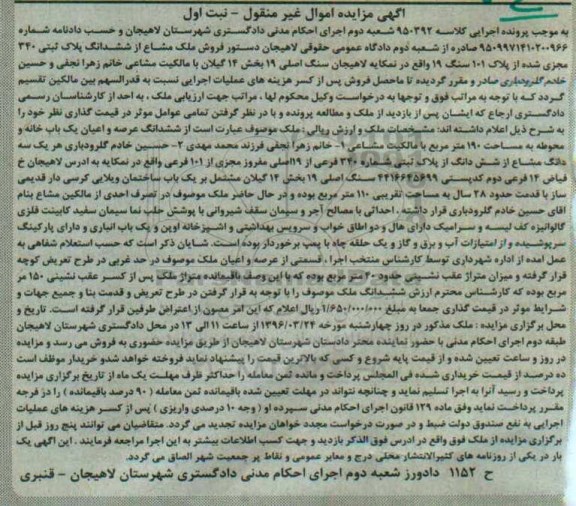 آگهی مزایده اموال غیر منقول - نبت اول
به موجب پرونده اجرایی کلاسه ۹۵۰۳۹۲ شعبه دوم اجرای احکام مدنی دادگستری شهرستان لاهیجان و حسب دادنامه شماره
۹۵۰۹۹۷۱۴۱۰۲۰۰۹۶۶ صادره از شعبه دوم دادگاه عمومی حقوقی لاهیجان دستور فروش ملک مشاع از ششدانگ پلاک ثبتی ۳۴۰
مجزی شده از پلاک ۱۰۱ سنگ ۱۹ واقع در نمکایه لاهیجان سنگ اصلی ۱۹ بخش ۱۴ گیلان با مالکیت مشاعی خانم زهرا نجفی و حسین
خادم گلرودباری صادر و مقرر گردیده تا ماحصل فروش پس از کسر هزینه های عملیات اجرایی نسبت به قدرالسهم بین مالکین تقسیم
گردد که با توجه به مراتب فوق و توجها به درخواست وکیل محکوم لها ، مراتب جهت ارزیابی ملک ، به احد از کارشناسان رسمی
دادگستری ارجاع که ایشان پس از بازدید از ملک و مطالعه پرونده و با در نظر گرفتن تمامی عوامل موثر در قیمت گذاری نظر خود را
به شرح ذیل اعلام داشته اند: مشخصات ملک و ارزش ریالی: ملک موصوف عبارت است از ششدانگ عرصه و اعیان یک باب خانه و
محوطه به مساحت ۱۹۰ متر مربع با مالکیت مشاعی ۱- خانم زهرا نجفی فرزند محمد مهدی ۲- حسین خادم گلرودباری هر یک سه
دانگ مشاع از شش دانگ از پلاک ثبتی شماره ۳۴۰ فرعی از ۱۹اصلی مفروز مجزی از ۱۰۱ فرعی واقع در نمکایه به ادرس لاهیجان خ
فیاض ۱۴ فرعی دوم کدپستی ۴۴۱۶۶۴۵۶۹۹ سنگ اصلی ۱۹ بخش ۱۴ گیلان مشتمل بر یک باب ساختمان ویلایی کرسی دار قدیمی
ساز با قدمت حدود ۲۸ سال به مساحت تقریبی ۱۱۰ متر مربع بوده و در حال حاضر ملک موصوف در تصرف احدی از مالکین مشاع بنام
اقای حسین خادم گلرودباری قرار داشته . احداثی با مصالح آجر و سیمان سقف شیروانی با پوشش حلب نما سیمان سفید کابینت فلزی
گالوانیزه کف لیسه و سرامیک دارای هال و دو اطاق خواب و سرویس بهداشتی و اشپزخانه اوپن و یک باب انباری و دارای پارکینگ
سرپوشیده و از امتیازات آب و برق و گاز و یک حلقه چاه با پمپ برخوردار بوده است. شایان ذکر است که حسب استعلام شفاهی به
عمل امده از اداره شهرداری توسط کارشناس منتخب اجرا ، قسمتی از عرصه و اعیان ملک موصوف در حد غربی در طرح تعریض کوچه
قرار گرفته و میزان متراژ عقب نشینی حدود ۴۰ متر مربع بوده که با این وصف باقیمانده متراژ ملک پس از کسر عقب نشینی ۱۵۰ متر
مربع بوده که کارشناس محترم ارزش ششدانگ ملک موصوف را با توجه به قرار گرفتن در طرح تعریض و قدمت بنا و جمیع جهات و
شرایط موثر در قیمت گذاری جمعا به مبلغ ۱/۶۵۰/۰۰۰/۰۰۰ ریال اعلام که این امر مصون از اعتراض طرفین قرار گرفته است. تاریخ و
محل برگزاری مزایده : ملک مذکور در روز چهارشنبه مورخه ۱۳۹۶/۰۳/۲۴ از ساعت ۱۱ الی ۱۳ در محل دادگستری شهرستان لاهیجان
طبقه دوم اجرای احکام مدنی با حضور نماینده محتر دادستان شهرستان لاهیجان از طریق مزایده حضوری به فروش می رسد و مزایده
در روز و ساعت تعیین شده و از قیمت پایه شروع و کسی که بالاترین قیمت را پیشنهاد نماید فروخته خواهد شدو خریدار موظف است
ده درصد از قیمت خریداری شده فی المجلس پرداخت و مانده ثمن معامله را حداکثر ظرف مهلت یک ماه از تاریخ برگزاری مزایده
پرداخت و رسید آنرا به اجرا تسلیم نماید و چنانچه نتواند در مهلت تعیین شده باقیمانده ثمن معامله ( ۹۰ درصد باقیمانده ) را در فرجه
مقرر پرداخت نماید وفق ماده ۱۲۹ قانون اجرای احکام مدنی سپرده او ( وجه ۱۰ درصدی واریزی ) پس از کسر هزینه های عملیات
اجرایی به نفع صندوق دولت ضبط و در صورت درخواست مجدد خواهان مزایده تجدید می گردد. متقاضیان می توانند پنج روز قبل از
برگزاری مزایده از ملک فوق واقع در ادرس فوق الذکر بازدید و جهت کسب اطلاعات بیشتر به این اجرا مراجعه فرمایند . این آگهی یک
بار در یکی از روزنامه های کثیرالانتشار محلی درج و معابر عمومی و نقاط پر جمعیت شهر الصاق می گردد.
ح ۱۱۵۲ دادورز شعبه دوم اجرای احکام مدنی دادگستری شهرستان لاهیجان - قنبری